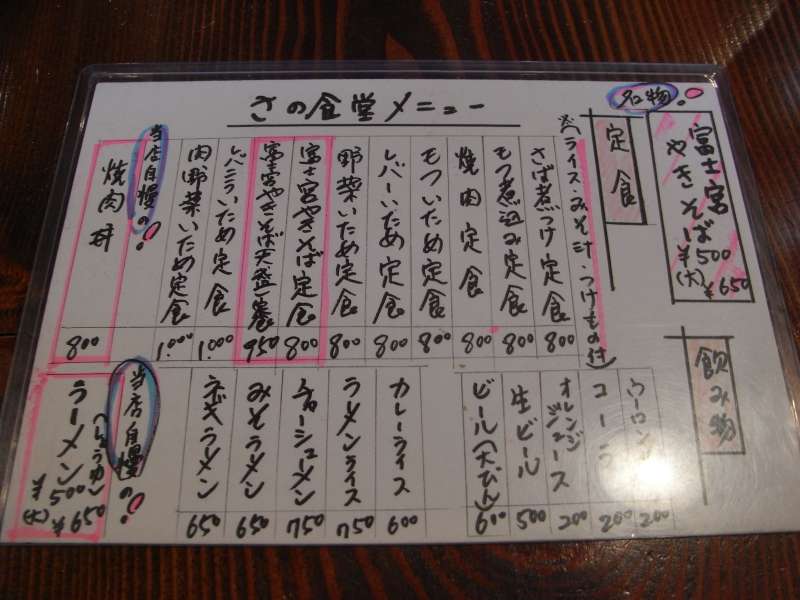 さの食堂メニュー
名物!
富士宮
やきそば
¥500
(大) ¥650
定食
※(ライス・みそ汁・つけもの付)
さば煮つけ定食 800
もつ煮込み定食 800
焼肉定食 800
もついため定食 800
レバーいため定食 800
野菜いため定食 800
富士宮やきそば定食 800
富士宮やきそば天盛 950
レバニラいため定食 1000
肉野菜いため定食 1000
当店自慢の!
焼肉丼 800
飲み物
ウーロン 200
コーラ 200
オレンジジュース 200
生ビール 500
ビール(大びん) 600
カレーライス 600
ラーメンライス 750
チャーシューメン 750
みそラーメン 650
ネギラーメン 650
当店自慢の!
ラーメン
(しょうゆ)
¥500
(大) ¥650